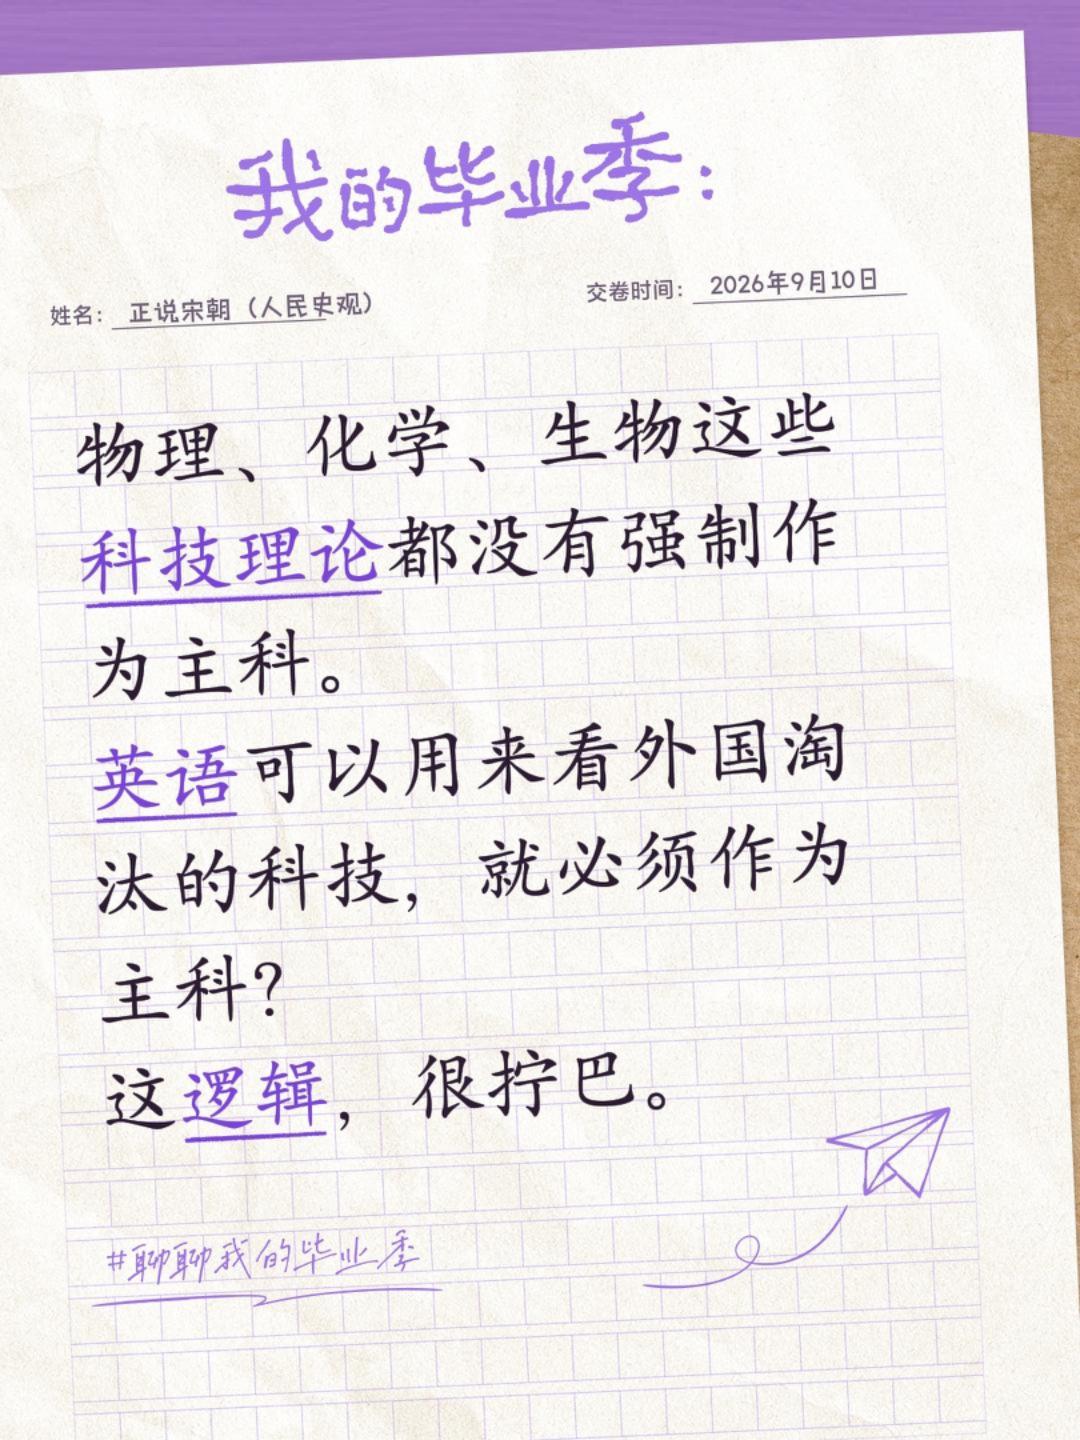 我的毕业季：
姓名：正说宋朝（人民史观） 交卷时间：2026年9月10日
物理、化学、生物这些
科技理论都没有强制作
为主科。
英语可以用来看外国淘
汰的科技，就必须作为
主科？
这逻辑，很拧巴。
#聊聊我的毕业季